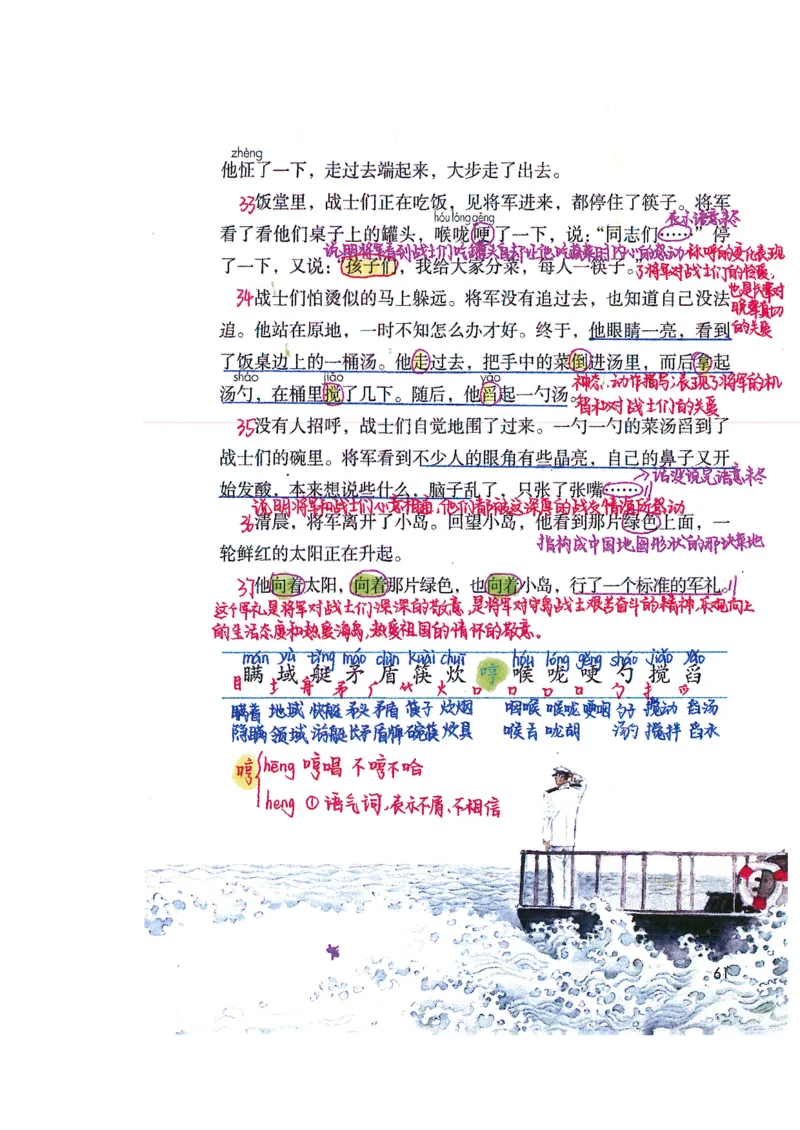 zhèng
他怔了一下，走过去端起来，大步走了出去。
33饭堂里，战士们正在吃饭，见将军进来，都停住了筷子。将军
hóu lóng gěng
表示语意未尽
看了看他们桌子上的罐头，喉咙哽了一下，说：“同志们……”停
说明将军看到战士们吃罐头自却让他吃蔬菜时内心的感动
称呼的变化表现
了一下，又说：“孩子们，我给大家分菜，每人一筷子。”
了将军对战士们的怜爱，
也是长辈对
晚辈真切
的关爱
34战士们怕烫似的马上躲远。将军没有追过去，也知道自己没法
追。他站在原地，一时不知怎么办才好。终于，他眼睛一亮，看到
了饭桌边上的一桶汤。他走过去，把手中的菜倒进汤里，而后拿起
sháo jiǎo yǎo
汤勺，在桶里搅了几下。随后，他舀起一勺汤。
神态、动作描写：表现了将军的机
智和对战士们的关爱
35没有人招呼，战士们自觉地围了过来。一勺一勺的菜汤舀到了
战士们的碗里。将军看到不少人的眼角有些晶亮，自己的鼻子又开
话没说完语意未尽
始发酸，本来想说些什么，脑子乱了，只张了张嘴……
说明将军和战士们心意相通，他们都被这深厚的战友情谊所感动
36清晨，将军离开了小岛。回望小岛，他看到那片绿色上面，一
指构成中国地图形状的那块菜地
轮鲜红的太阳正在升起。
37他向着太阳，向着那片绿色，也向着小岛，行了一个标准的军礼。
这个军礼是将军对战士们深深的敬意，是将军对守岛战士艰苦奋斗的精神，乐观向上
的生活态度和热爱海岛，热爱祖国的情怀的敬意。
mán yù tǐng máo dùn kuài chuī hóu lóng gěng sháo jiǎo yǎo
瞒 域 艇 矛 盾 筷 炊 哼 喉 咙 哽 勺 搅 舀
目 土 舟 矛 厂 竹 火 口 口 口 口 勹 扌 臼
瞒着 地域 快艇 矛头 矛盾 筷子 炊烟 咽喉 喉咙 哽咽 勺子 搅动 舀汤
隐瞒 领域 游艇 长矛 盾牌 碗筷 炊具 喉舌 咙胡 汤勺 搅拌 舀水
哼 hēng 哼唱 不哼不哈
heng ①语气词，表示不屑、不相信
61